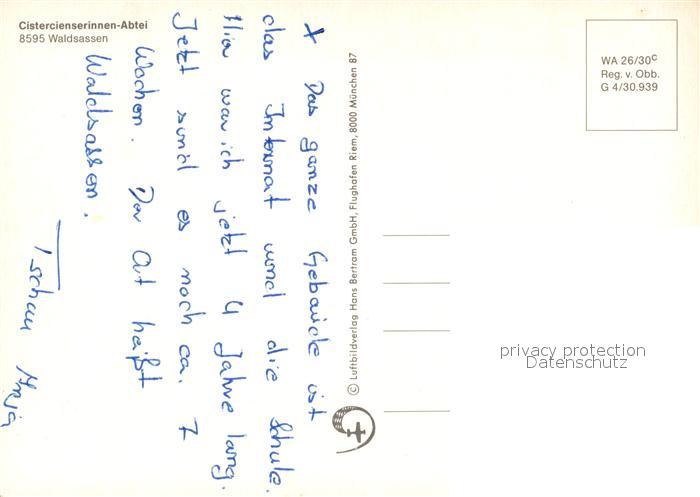 Cistercienserinnen-Abtei
8595 Waldsassen
WA 26/30c
Reg. v. Obb.
G 4/30.939
x Das ganze Gebäude ist
das Internat und die Schule.
Hier war ich jetzt 4 Jahre lang.
Jetzt sind es noch ca. 7
Wochen. Der Ort heißt
Waldsassen.
Tschau Anja
© Luftbildverlag Hans Bertram GmbH, Flughafen Riem, 8000 München 87
privacy protection
Datenschutz